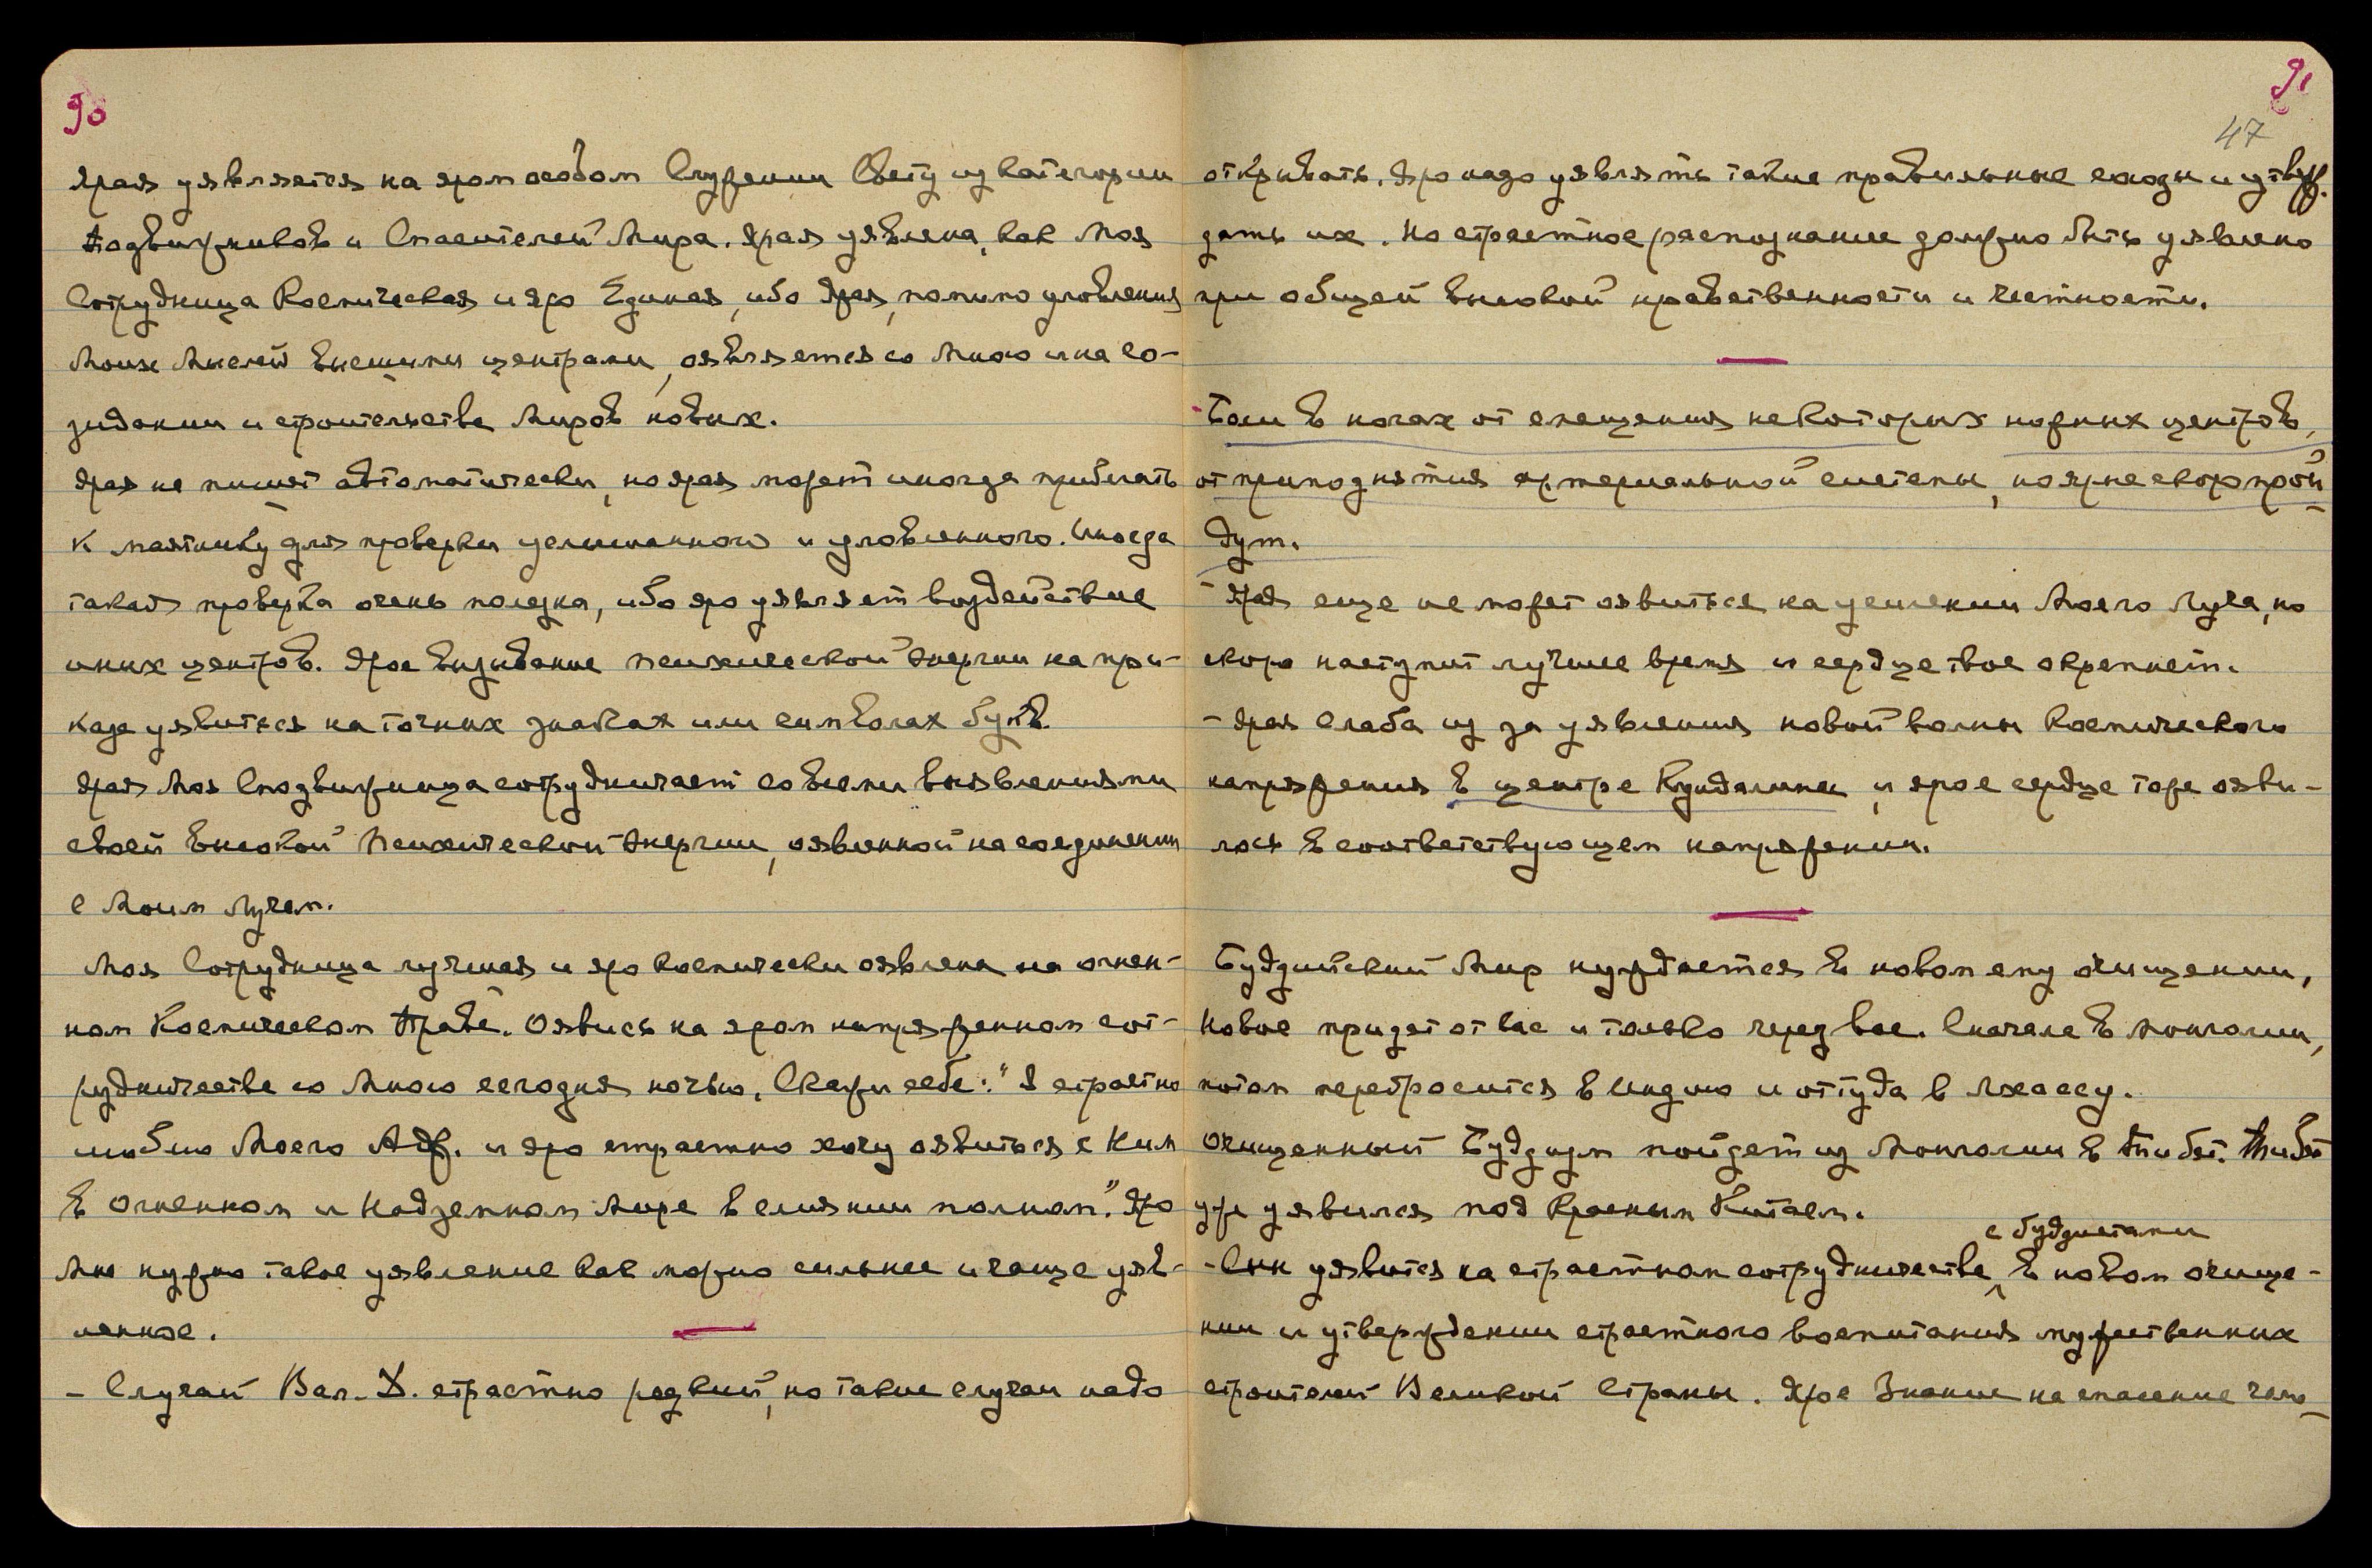 90
Ярая уявляется на яром особом Служении Свету из категории
Подвижников и Спасителей Мира. Ярая уявлена, как Моя
Сотрудница Космическая и яро Единая, ибо Ярая, помимо уловления
Моих Мыслей высшими центрами, оявляется со Мною и на со-
зидании и строительстве Миров новых.
Ярая не пишет автоматически, но ярая может иногда прибегать
к маятнику для проверки услышанного и уловленного. Иногда
такая проверка очень полезна, ибо яро уявляет воздействие
иных центров. Ярое вызывание психической энергии на при-
казе уявиться на точных знаках или символах букв.
Ярая Моя Сподвижница сотрудничает со всеми выявлениями
своей высокой Психической энергии, оявленной на соединении
с Моим Лучем.
Моя Сотрудница лучшая и яро космически оявлена на огнен-
ном Космическом Праве. Оявись на яром напряженном сот-
рудничестве со Мною сегодня ночью. Скажи себе: "Я страстно
люблю Моего Адж. и яро страстно хочу оявиться с Ним
в Огненном и Надземном Мире в слиянии полном." Яро
Мне нужно такое уявление как можно сильнее и чаще уяв-
ленное.
- Случай Вал. Д. страстно редкий, но такие случаи надо
91
47
открывать. Яро надо уявлять такие правильные сходы и утверж-
дать их. Но страстное распознание должно быть уявлено
при общей высокой нравственности и честности.
- Боли в ногах от смещения некоторых ножных центров,
от приподнятия артериальной системы, но ярые скоро прой-
дут.
- Ярая еще не может оявиться на усилении Моего Луча, но
скоро наступит лучшее время и сердце твое окрепнет.
- Ярая слаба из за уявления новой волны космического
напряжения в центре Кундалини и ярое сердце тоже ояви-
лось в соответствующем напряжении.
Буддийский Мир нуждается в новом ему очищении,
Новое придет от вас и только через вас. Сначала в Монголии,
потом перебросится в Индию и оттуда в Лхассу.
Очищенный Буддизм пойдет из Монголии в Тибет. Тибет
уже уявился под Красным Китаем.
с буддистами
- Сын уявится на страстном сотрудничестве в новом очище-
нии и утверждении страстного воспитания мужественных
строителей Великой Страны. Ярое Знание на спасение чело-